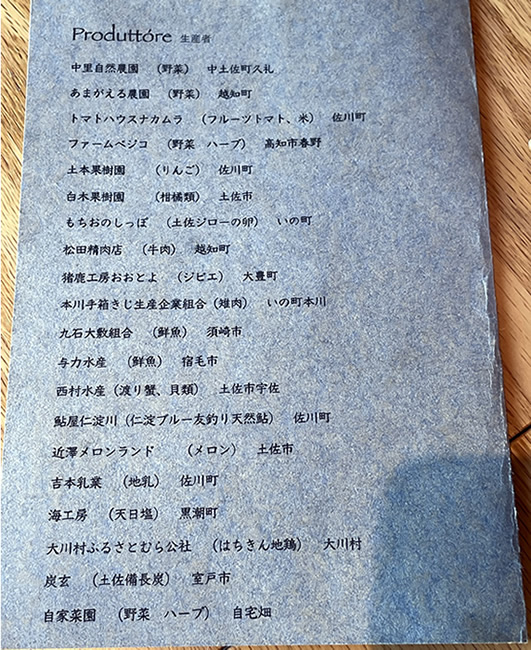 Produttóre 生産者
中里自然農園 （野菜） 中土佐町久礼
あまがえる農園 （野菜） 越知町
トマトハウスナカムラ （フルーツトマト、米） 佐川町
ファームベジコ （野菜 ハーブ） 高知市春野
土本果樹園 （りんご） 佐川町
白木果樹園 （柑橘類） 土佐市
もちおのしっぽ （土佐ジローの卵） いの町
松田精肉店 （牛肉） 越知町
猪鹿工房おおとよ （ジビエ） 大豊町
本川手箱きじ生産企業組合（雉肉） いの町本川
九石大敷組合 （鮮魚） 須崎市
与力水産 （鮮魚） 宿毛市
西村水産（渡り蟹、貝類） 土佐市宇佐
鮎屋仁淀川（仁淀ブルー友釣り天然鮎） 佐川町
近澤メロンランド （メロン） 土佐市
吉本乳業 （地乳） 佐川町
海工房 （天日塩） 黒潮町
大川村ふるさとむら公社 （はちきん地鶏） 大川村
炭玄 （土佐備長炭） 室戸市
自家菜園 （野菜 ハーブ） 自宅畑